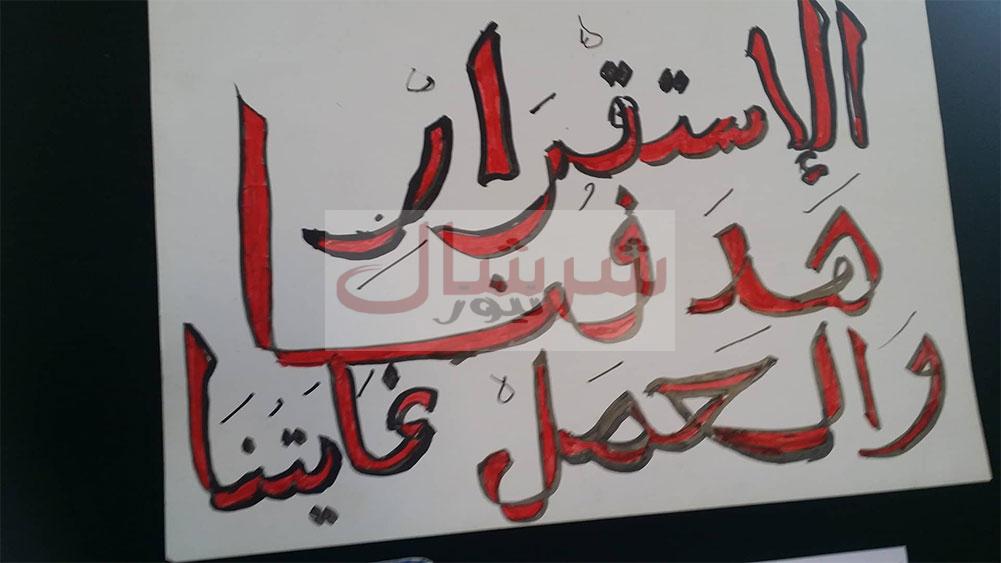 الإستقرار
هدفنا
والعمل غايتنا
شرشال
نيوز